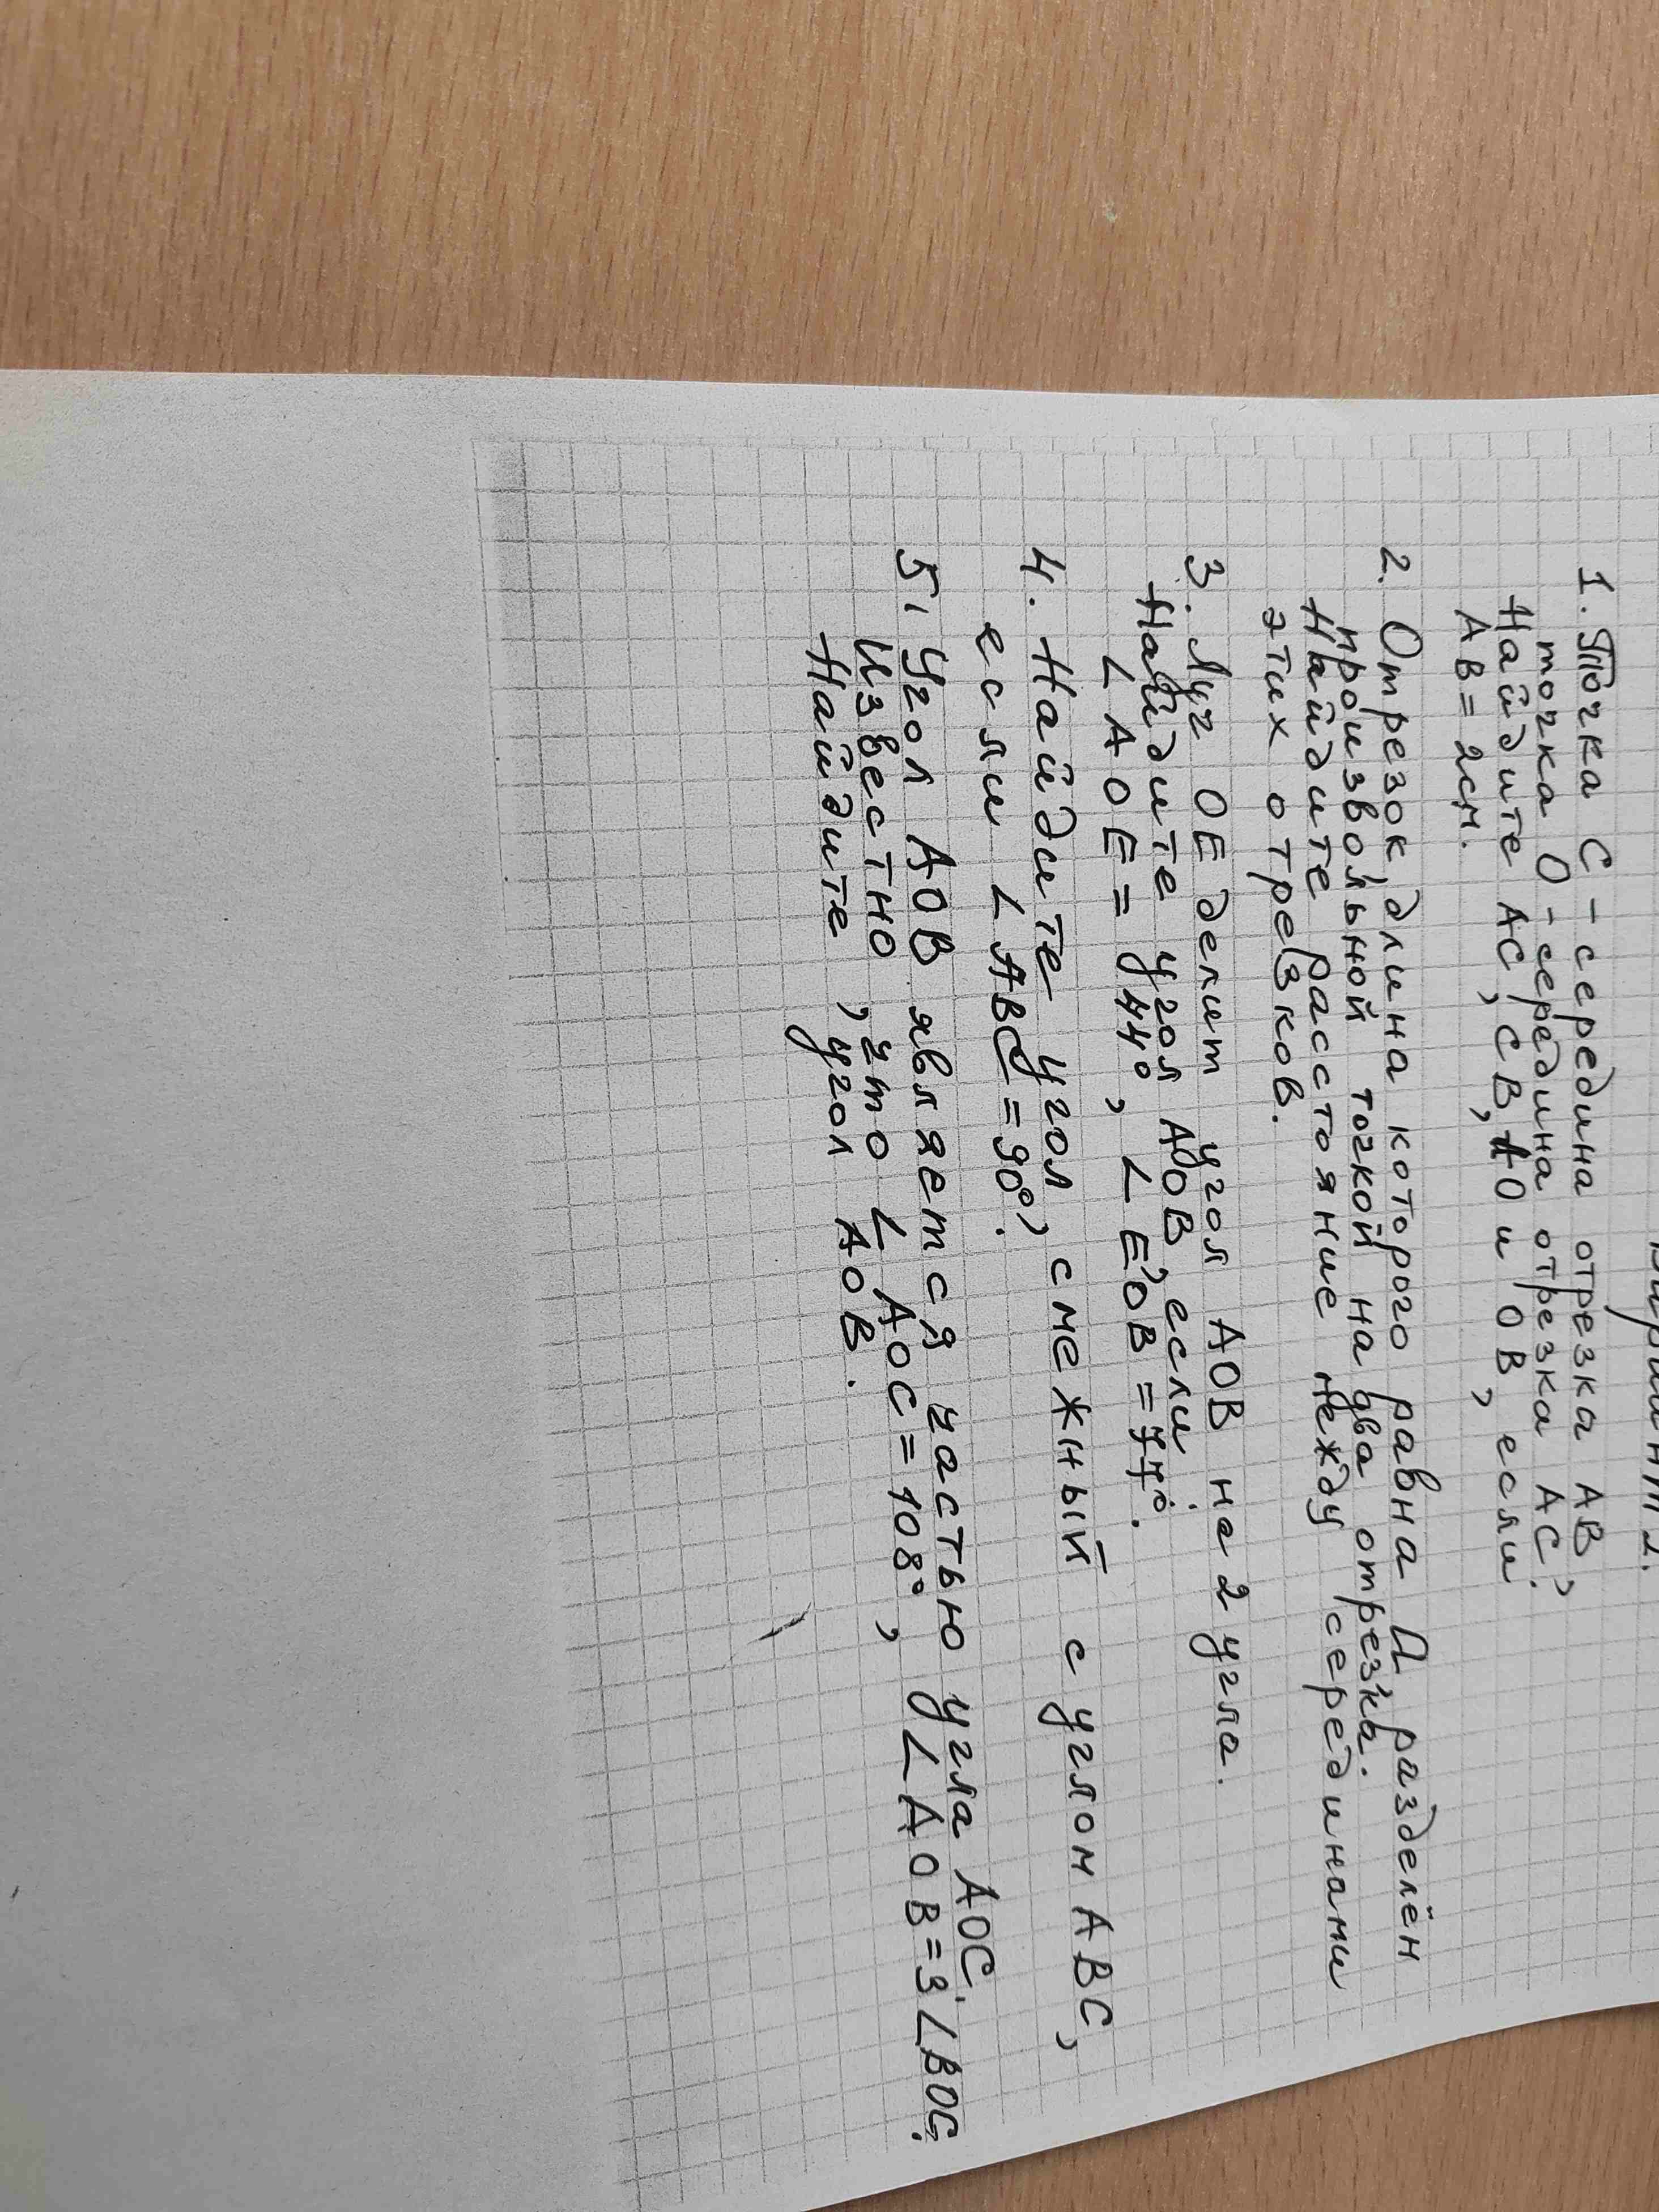 1. Точка С - середина отрезка АВ,
точка О - середина отрезка АС.
Найдите АС, СВ, АО и ОВ, если
АВ = 2см.
2. Отрезок, длина которого равна Д разделён
произвольной точкой на два отрезка.
Найдите расстояние между серединами
этих отрезков.
3. Луч ОЕ делит угол АОВ на 2 угла.
Найдите угол АОВ, если
∠АОЕ = 44°, ∠ЕОВ = 77°.
4. Найдите угол, смежный с углом АВС,
если ∠АВС = 90°.
5. Угол АОВ является частью угла АОС.
Известно, что ∠АОС = 108°, ∠АОВ = 3∠ВОС.
Найдите угол АОВ.